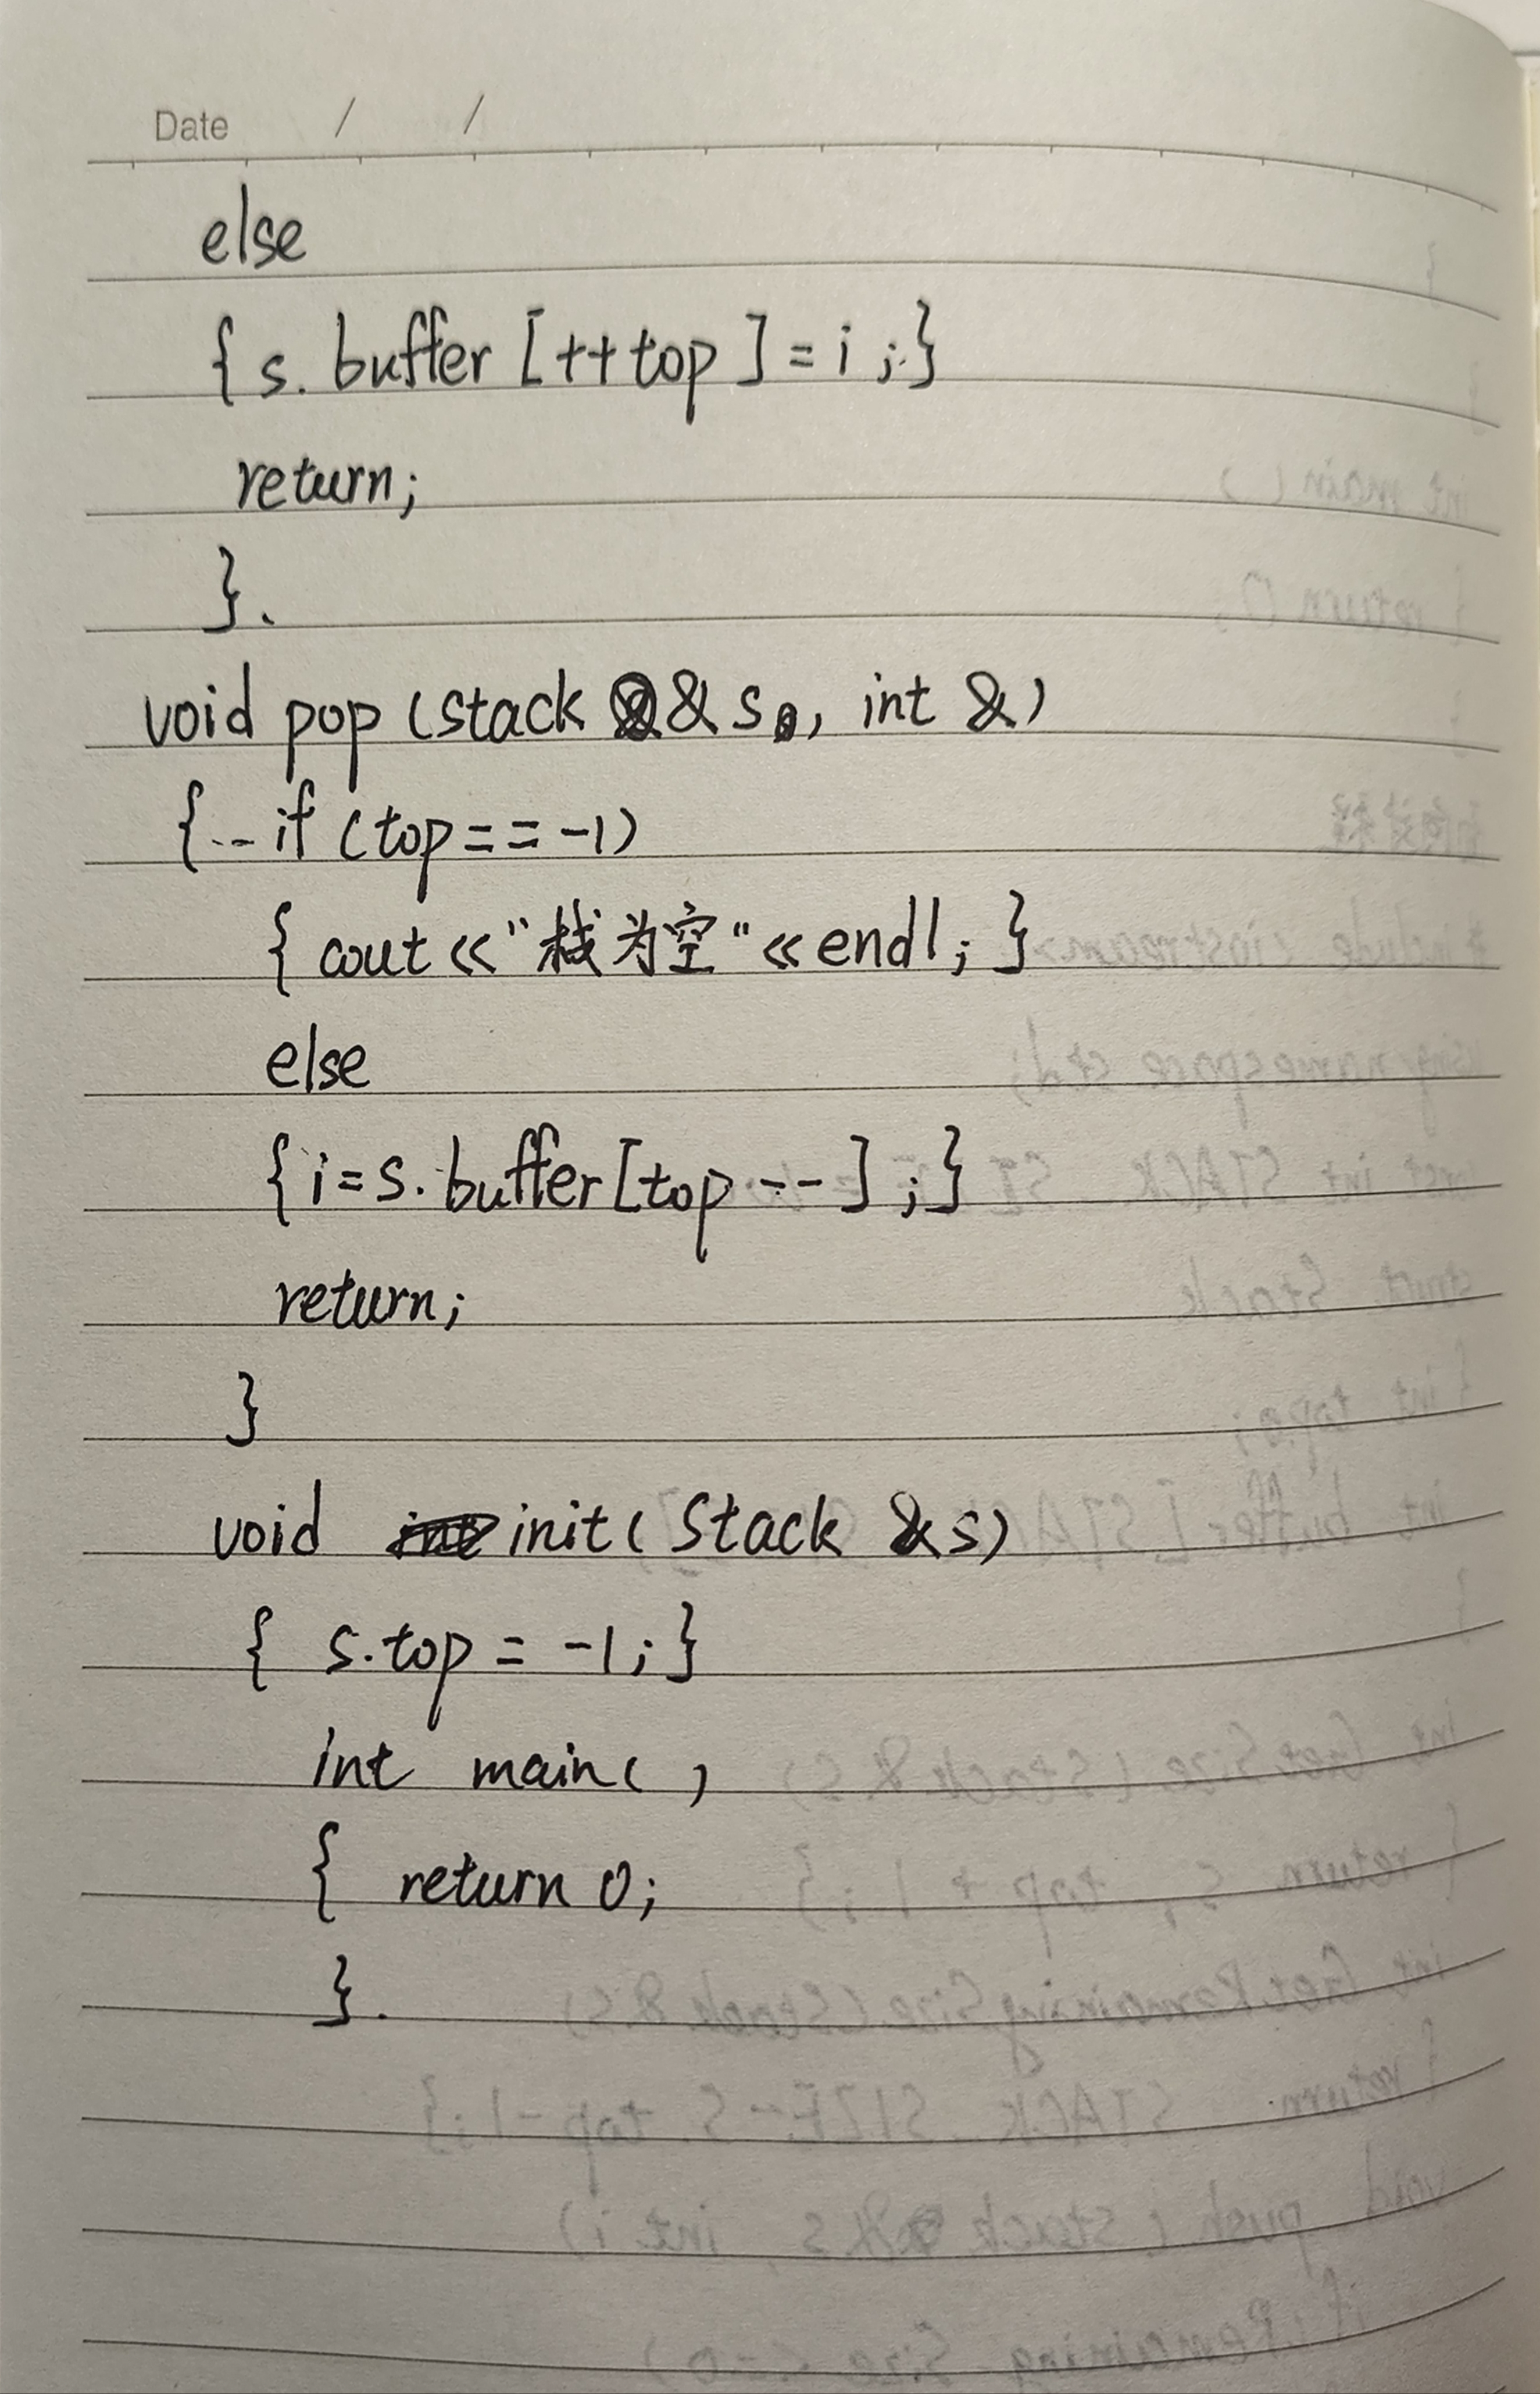 Date / /
else
{ s. buffer [++top ] = i ;}
return;
}.
void pop (stack & s, int &)
{ -- if (top == -1)
{ cout << "栈为空" << endl; }
else
{ i = s. buffer [top --] ;}
return;
}
void init( Stack & s)
{ s.top = -1; }
int main( )
{ return 0;
}.